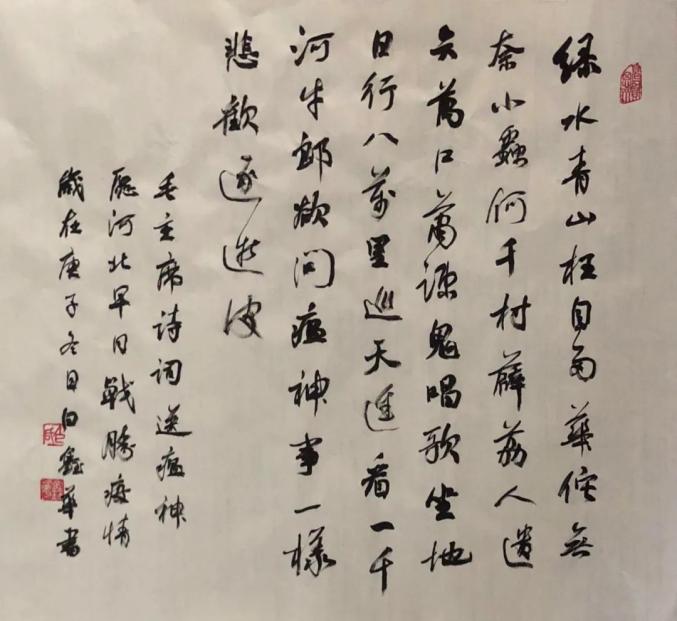 绿水青山枉自多華佗無
奈小蟲何千村薜荔人遗
矢萬户萧疏鬼唱歌坐地
日行八萬里巡天遥看一千
河牛郎欲问瘟神事一樣
悲歡逐逝波
毛主席诗词送瘟神
愿河北早日戰勝疫情
歲在庚子冬日白鑫華書